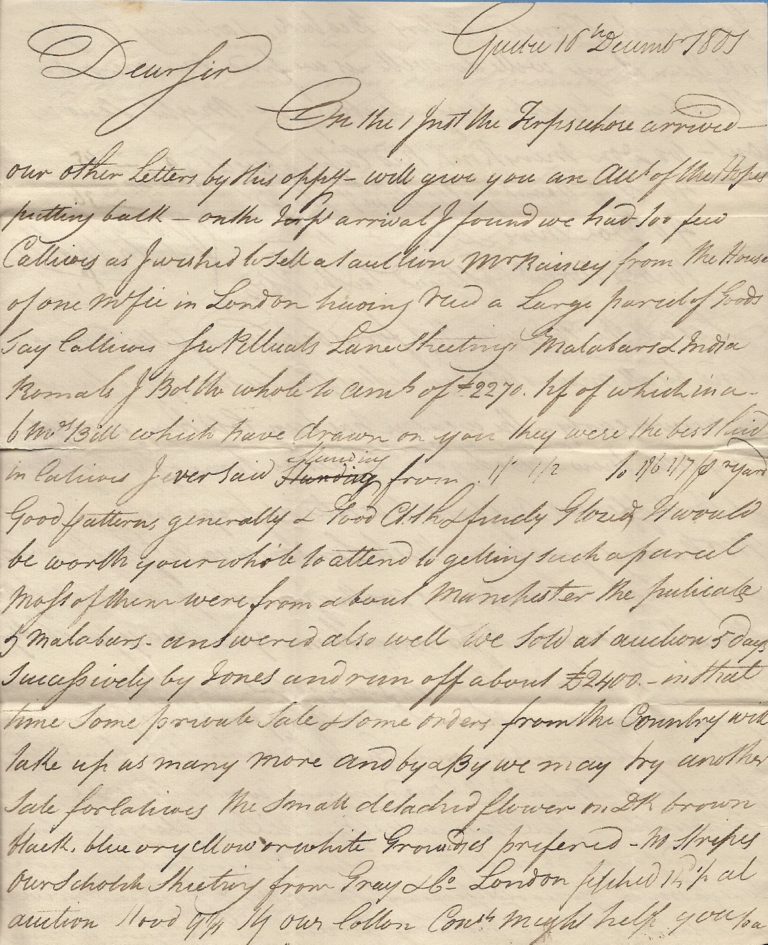 Quebec 16th Decembr 1801
Dear Sir
On the 1 Inst the Terpsichore arrived
our other Letters by this oppy - will give you an Act of the Hopes
putting back - on the Terps arrival I found we had too few
Callicoes as I wished to sell at auction Mr Rainey from the House
of one in London having recd a Large parcel of Goods
say Callicoes Pullicats Lane Sheeting Malabars & India
Romals I Bot the whole to amt of £2270. hf of which in a
6 Mos Bill which have drawn on you they were the best laid
in Calicoes I ever said Standing from 1/1 1/2 to 1/6 1/7 p Yard
Good patterns generally & Good Cloth & finely Glozed, It would
be worth your while to attend to getting such a parcel
Most of them were from about Manchester the pulicats
& Malabars - answered also well We sold at auction 5 days
Sucessively by Jones and run off about £2400 - in that
time some private Sale & some orders from the Country will
take up as many more and by & By we may try another
Sale for Calicoes the small detached flower on Dk brown
black, blue or yellow or white Grounds prefered - No Stripes
our Scholch Sheeting from Gray & Co London fetched at
auction Stood our Cotton might help you